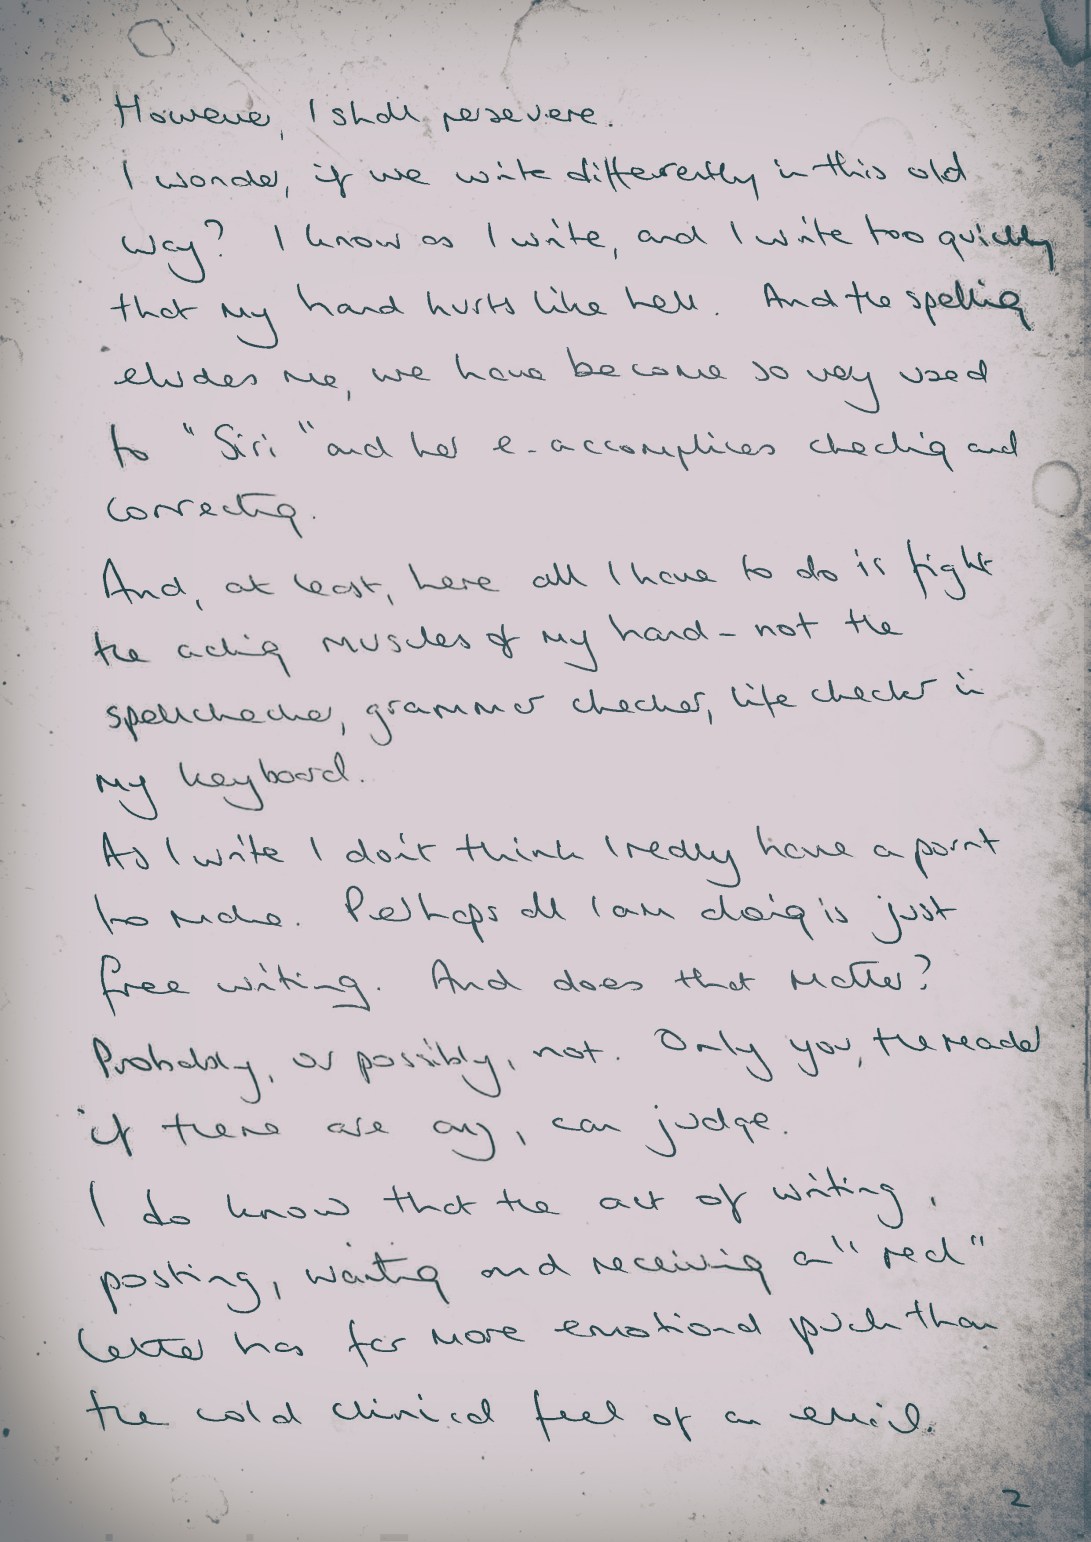 However, I shall persevere.
I wonder, if we write differently in this old
way? I know as I write, and I write too quickly
that my hand hurts like hell. And the spelling
eludes me, we have become so very used
to "Siri" and her e-accomplices checking and
correcting.
And, at least, here all I have to do is fight
the aching muscles of my hand - not the
spellchecker, grammar checker, life checker in
my keyboard.
As I write I don't think I really have a point
to make. Perhaps all I am doing is just
free writing. And does that matter?
Probably, or possibly, not. Only you, the reader
if there are any, can judge.
I do know that the act of writing,
posting, waiting and receiving a "real"
letter has far more emotional punch than
the cold clinical feel of an email.
2